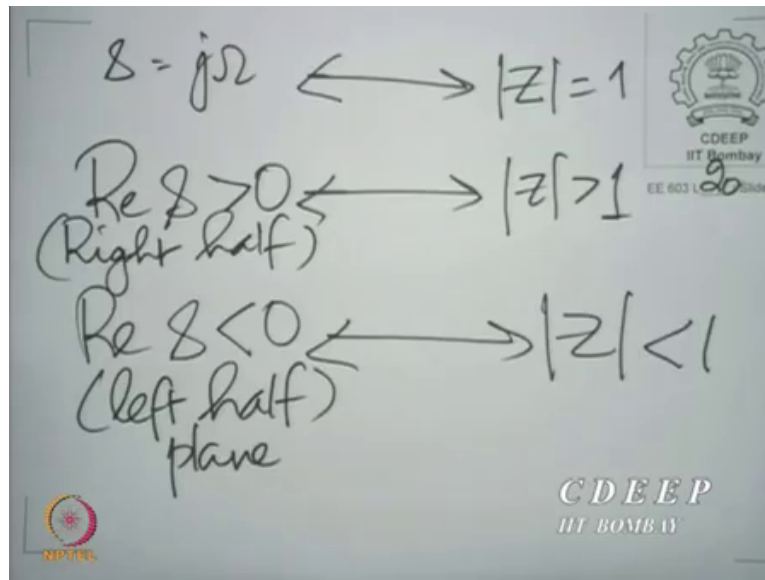 s = jΩ ⟷ |Z| = 1
CDEEP
IIT Bombay
EE 603 L 20 Slide
Re s > 0 ⟷ |z| > 1
(Right half)
Re s < 0 ⟷ |z| < 1
(left half)
plane
CDEEP
IIT BOMBAY
NPTEL